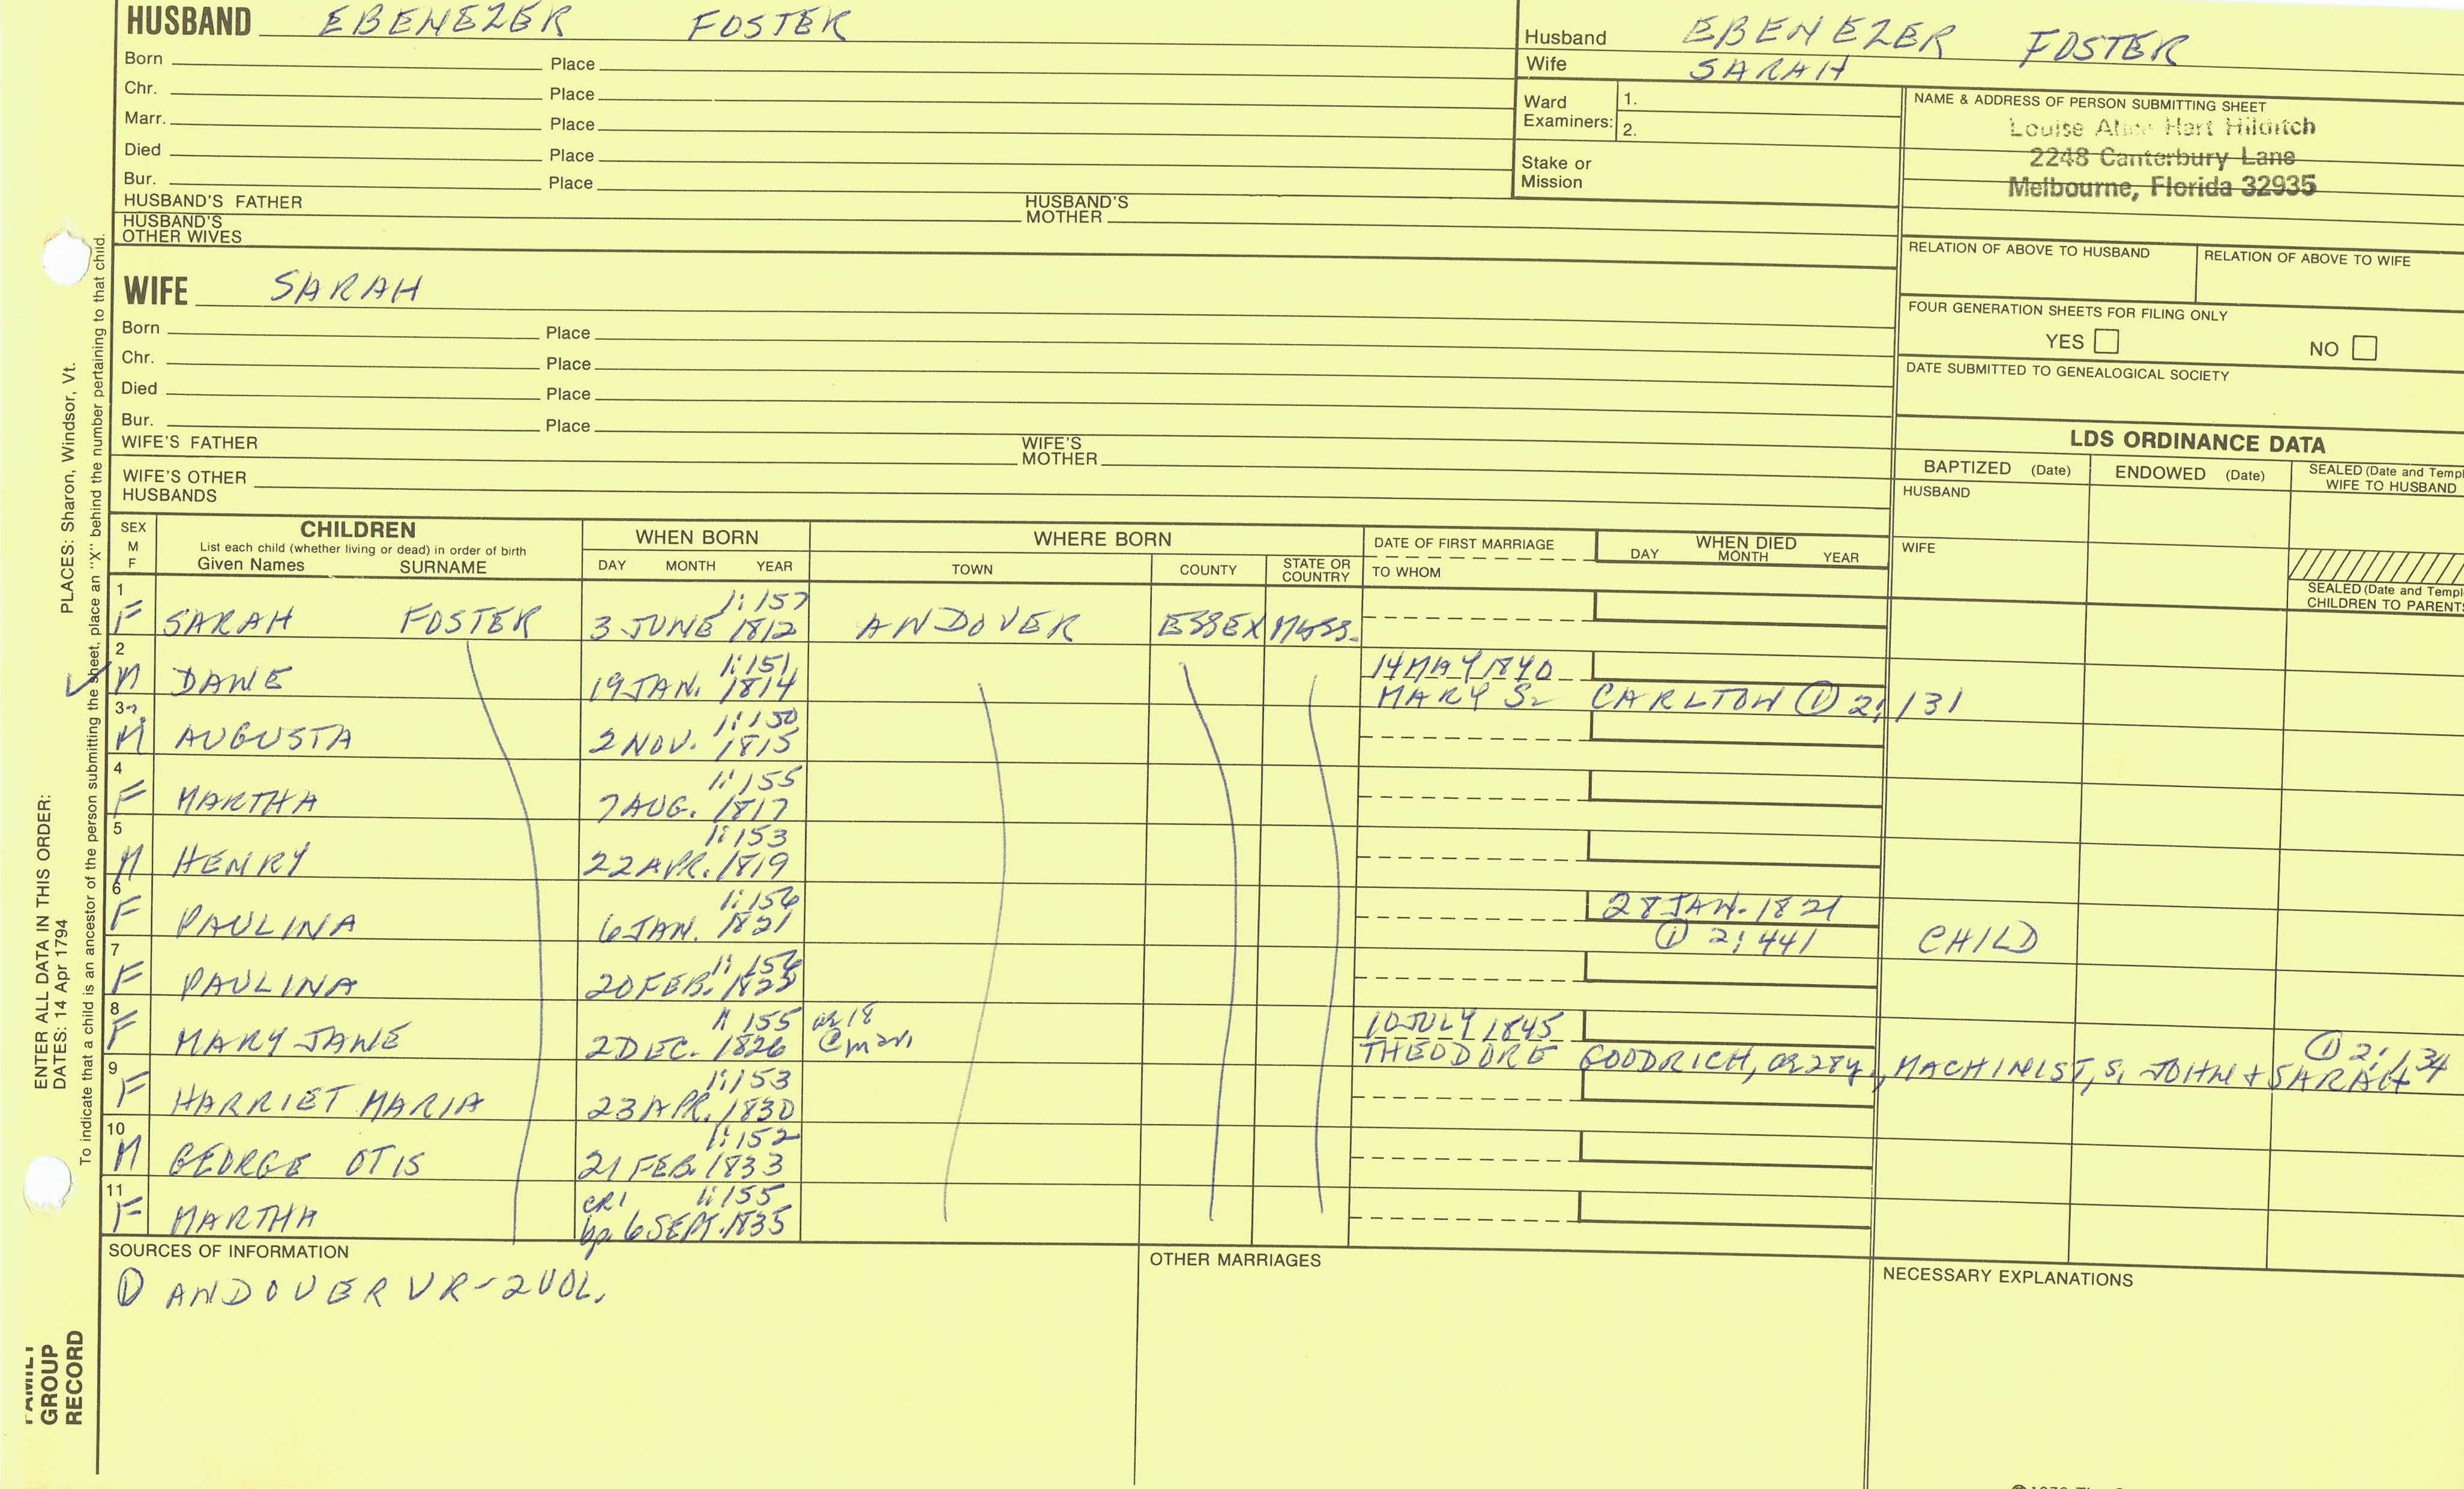 HUSBAND EBENEZER FOSTER
Born Place
Chr. Place
Marr. Place
Died Place
Bur. Place
HUSBAND'S FATHER HUSBAND'S MOTHER
HUSBAND'S OTHER WIVES
Husband EBENEZER FOSTER
Wife SARAH
Ward Examiners: 1.
2.
Stake or Mission
NAME & ADDRESS OF PERSON SUBMITTING SHEET
Louise Hart Hilditch
2248 Canterbury Lane
Melbourne, Florida 32935
RELATION OF ABOVE TO HUSBAND RELATION OF ABOVE TO WIFE
FOUR GENERATION SHEETS FOR FILING ONLY
YES NO
DATE SUBMITTED TO GENEALOGICAL SOCIETY
WIFE SARAH
Born Place
Chr. Place
Died Place
Bur. Place
WIFE'S FATHER WIFE'S MOTHER
WIFE'S OTHER HUSBANDS
LDS ORDINANCE DATA
BAPTIZED (Date) ENDOWED (Date) SEALED (Date and Templ
WIFE TO HUSBAND
HUSBAND
WIFE
SEALED (Date and Templ
CHILDREN TO PARENTS
SEX M F
CHILDREN
List each child (whether living or dead) in order of birth
Given Names SURNAME
WHEN BORN
DAY MONTH YEAR
WHERE BORN
TOWN COUNTY STATE OR COUNTRY
DATE OF FIRST MARRIAGE
TO WHOM
WHEN DIED
DAY MONTH YEAR
1 1:157
F SARAH FOSTER 3 JUNE 1812 ANDOVER ESSEX MASS.
2 1:151 14 MAY 1840
M DANE 19 JAN. 1814 MARY S. CARLTON ① 2:131
3 1:150
M AUGUSTA 2 NOV. 1815
4 1:155
F MARTHA 7 AUG. 1817
5 1:153
M HENRY 22 APR. 1819
6 1:156 28 JAN. 1821
F PAULINA 6 JAN. 1821 ① 2:441 CHILD
7 1:156
F PAULINA 20 FEB.
8 1:155 ae 18 10 JULY 1845 ① 2:134
F MARY JANE 2 DEC. 1826 @ mar. THEODORE GOODRICH, ae 28y., MACHINIST, S. JOHN & SARAH
9 1:153
F HARRIET MARIA 23 APR. 1830
10 1:152
M GEORGE OTIS 21 FEB. 1833
11 CR1 1:155
F MARTHA bp. 6 SEPT. 1835
SOURCES OF INFORMATION
① ANDOVER VR-2VOL.
OTHER MARRIAGES
NECESSARY EXPLANATIONS
ENTER ALL DATA IN THIS ORDER:
DATES: 14 Apr 1794 PLACES: Sharon, Windsor, Vt.
To indicate that a child is an ancestor of the person submitting the sheet, place an "X" behind the number pertaining to that child.
FAMILY
GROUP
RECORD